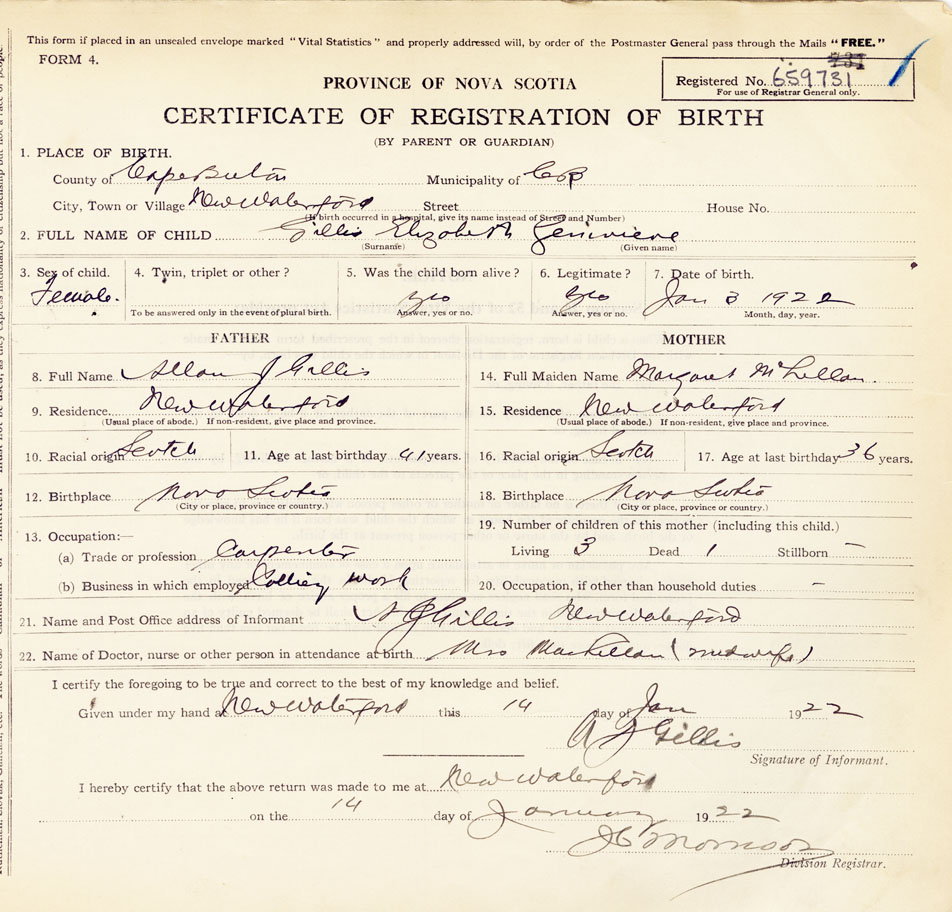 This form if placed in an unsealed envelope marked "Vital Statistics" and properly addressed will, by order of the Postmaster General pass through the Mails "FREE."
FORM 4.
731
Registered No. 659731
For use of Registrar General only.
PROVINCE OF NOVA SCOTIA
CERTIFICATE OF REGISTRATION OF BIRTH
(BY PARENT OR GUARDIAN)
1. PLACE OF BIRTH.
County of Cape Breton Municipality of C B
City, Town or Village New Waterford Street House No.
(If birth occurred in a hospital, give its name instead of Street and Number)
2. FULL NAME OF CHILD Gillis Elizabeth Genevieve
(Surname) (Given name)
3. Sex of child. 4. Twin, triplet or other? 5. Was the child born alive? 6. Legitimate? 7. Date of birth.
Female. yes yes Jan 3 1922
To be answered only in the event of plural birth. Answer, yes or no. Answer, yes or no. Month, day, year.
FATHER MOTHER
8. Full Name Allan J Gillis 14. Full Maiden Name Margaret McLellan.
9. Residence New Waterford 15. Residence New Waterford
(Usual place of abode.) If non-resident, give place and province. (Usual place of abode.) If non-resident, give place and province.
10. Racial origin Scotch 11. Age at last birthday 41 years. 16. Racial origin Scotch 17. Age at last birthday 36 years.
12. Birthplace Nova Scotia 18. Birthplace Nova Scotia
(City or place, province or country.) (City or place, province or country.)
13. Occupation:— 19. Number of children of this mother (including this child.)
(a) Trade or profession Carpenter Living 3 Dead 1 Stillborn –
(b) Business in which employed Colliery work 20. Occupation, if other than household duties –
21. Name and Post Office address of Informant A J Gillis New Waterford
22. Name of Doctor, nurse or other person in attendance at birth Mrs MacLellan (midwife)
I certify the foregoing to be true and correct to the best of my knowledge and belief.
Given under my hand at New Waterford this 14 day of Jan 1922
A J Gillis
Signature of Informant.
I hereby certify that the above return was made to me at New Waterford
on the 14 day of January 1922
J C Morrison
Division Registrar.